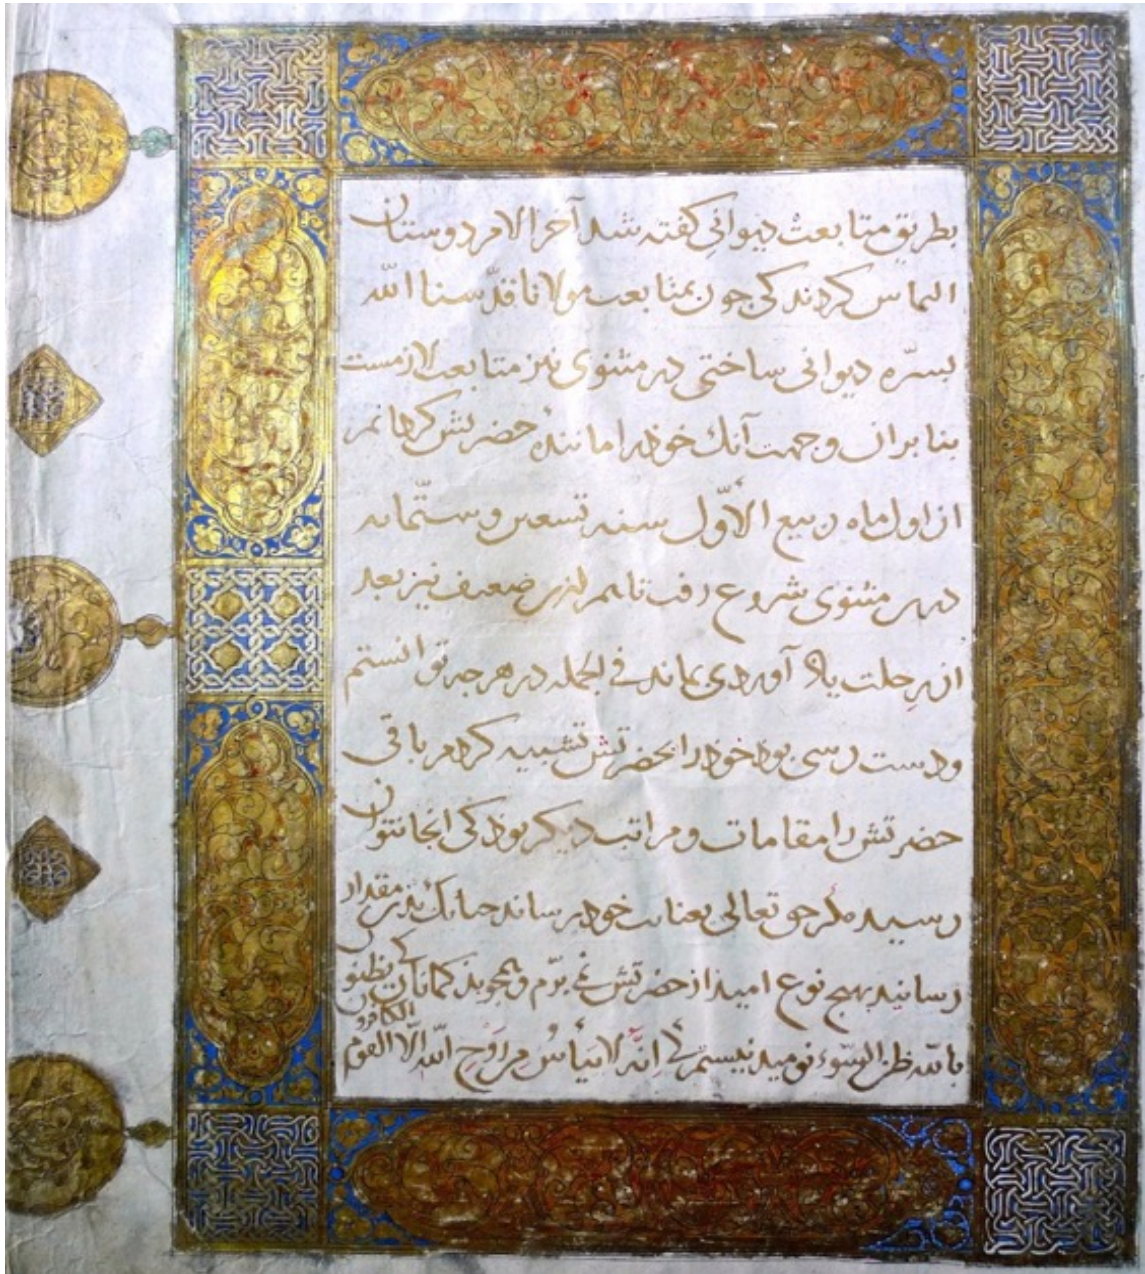 بطریق متابعت دیوانی کفته شد آخر الامر دوستان
التماس کردند کی جون بمتابعت مولانا قدّسنا الله
بسرّه دیوانی ساختی در مثنوی نیز متابعت لازمست
بنا بران و جهت آنك خوذ را مانندهٔ حضرتش کردهانم
از اول ماه ربیع الاوّل سنه تسعین و ستّمایه
درین مثنوی شروع رفت تا هم ازین ضعیف نیز بعد
از رحلت یاد آوردی بماند فی الجمله در هرجه توانستم
و دست رسی بوذ خوذ را بحضرتش تشبیه کردم باقی
حضرتش را مقامات و مراتب دیکر بوذ کی آنجا نتوان
رسید مکر حق تعالی بعنایت خوذ رساند جنانك بذین مقدار
رسانید بهیج نوع امید از حضرتش نمی برّم و همجون کسانی کی یظنون
بالله ظن السّوء نومید نیستم کی اِنّه لا ییأسُ من رَوْحِ الله اِلّا القوم الکافرون